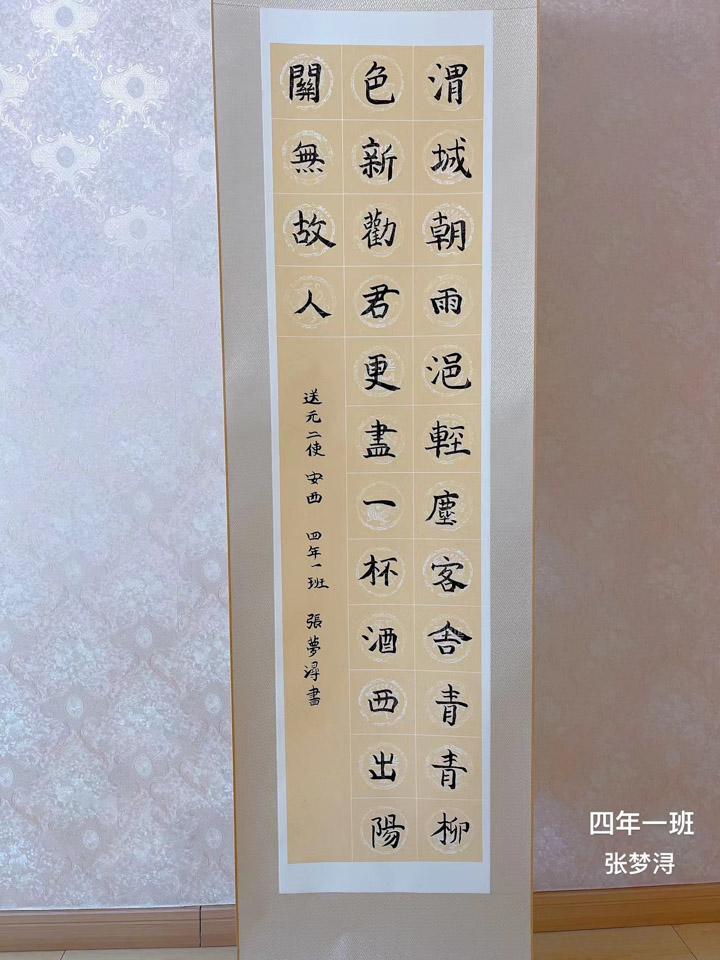 渭城朝雨浥輕塵客舍青青柳
色新勸君更盡一杯酒西出陽
關無故人
送元二使安西 四年一班 張夢潯書
四年一班
张梦浔